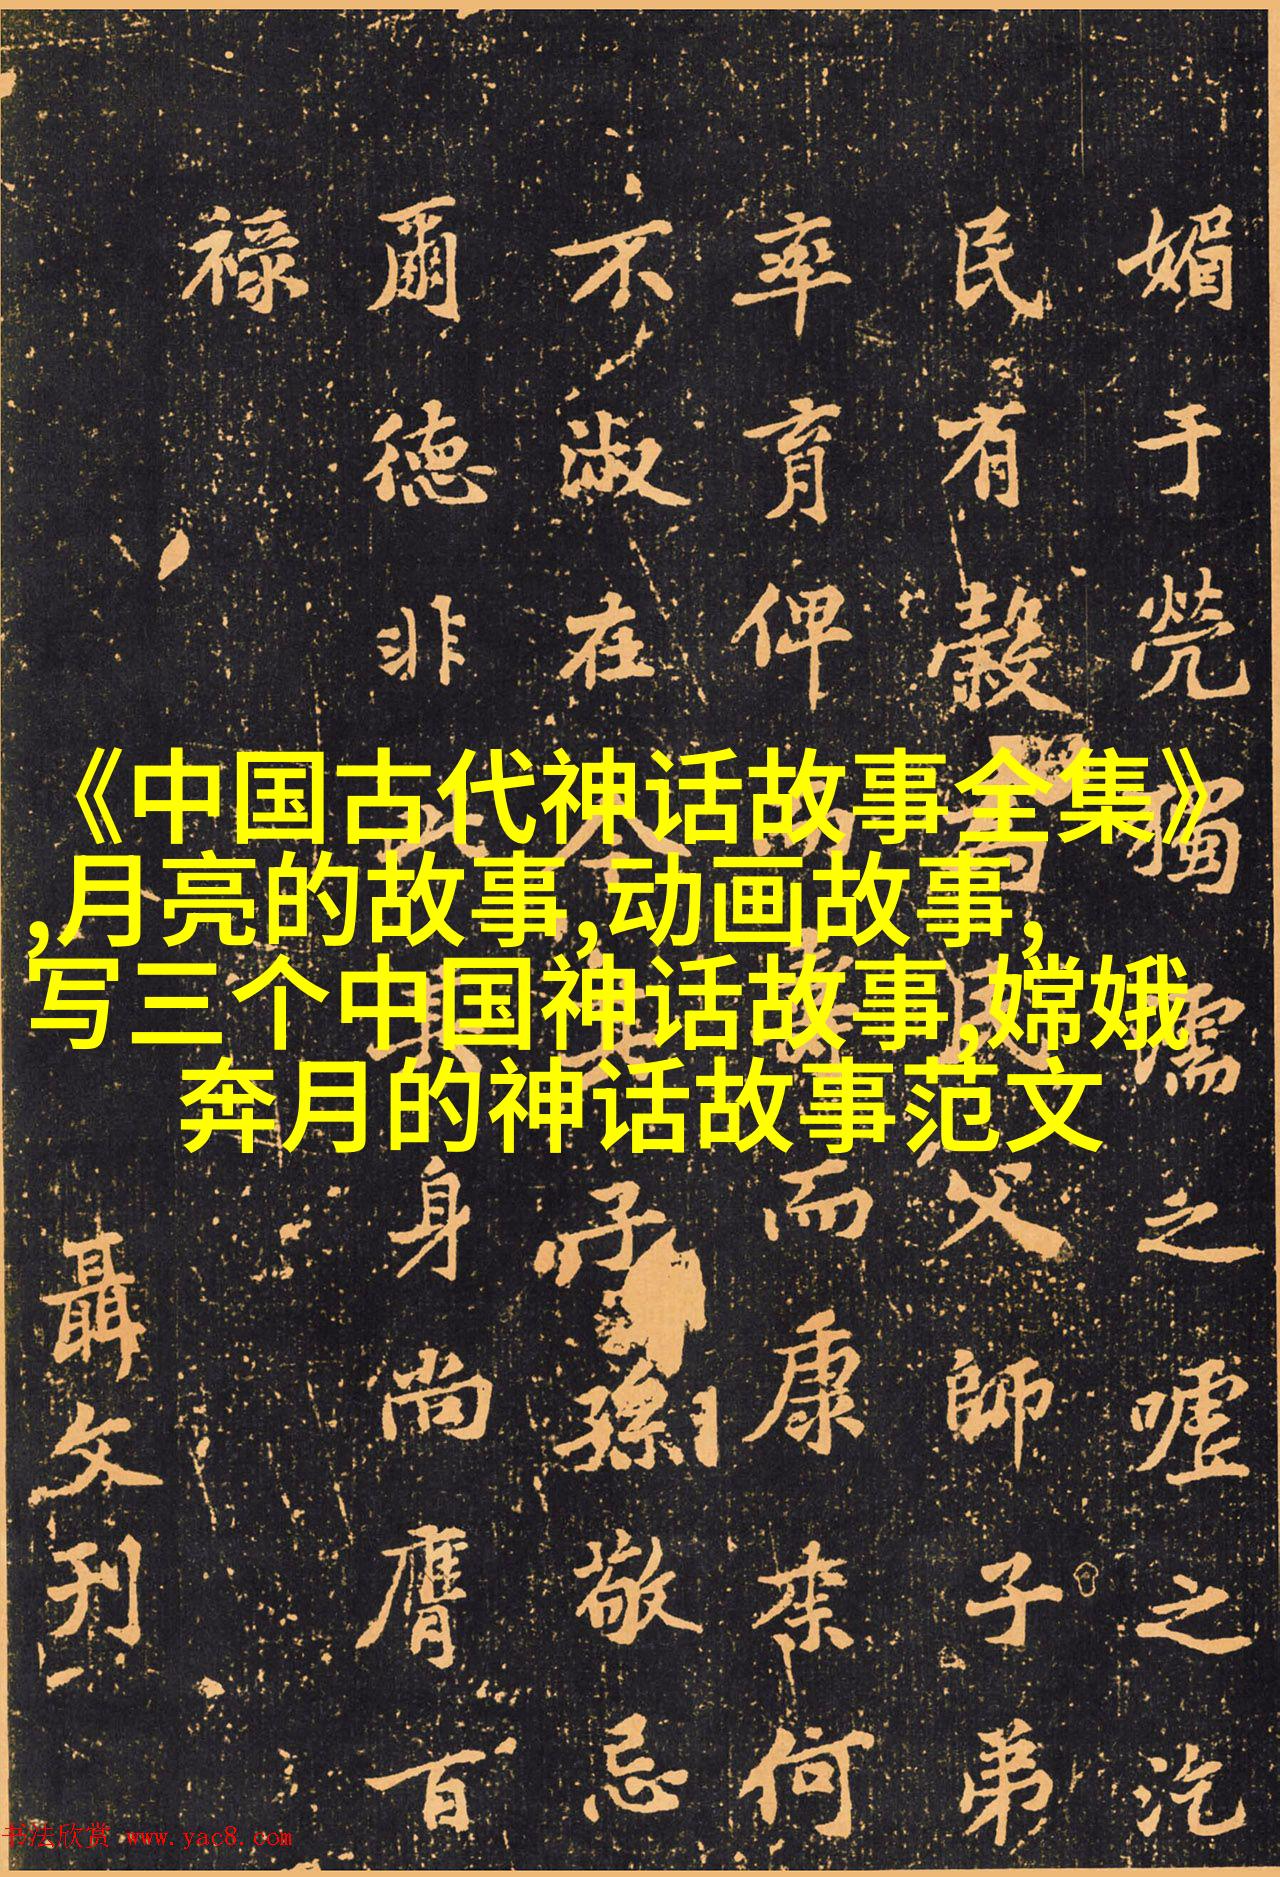 《中国古代神话故事全集》
,月亮的故事,动画故事,
写三个中国神话故事,嫦娥
奔月的神话故事范文
媚于煢獨孺之嘘之汔
民有穀富民父師子弟
率育俾壽而康来何
不淑在今其子孫敬忌
爾德非此其身尚膺百
祿
聶文刊
书法欣赏 www.yac8.com